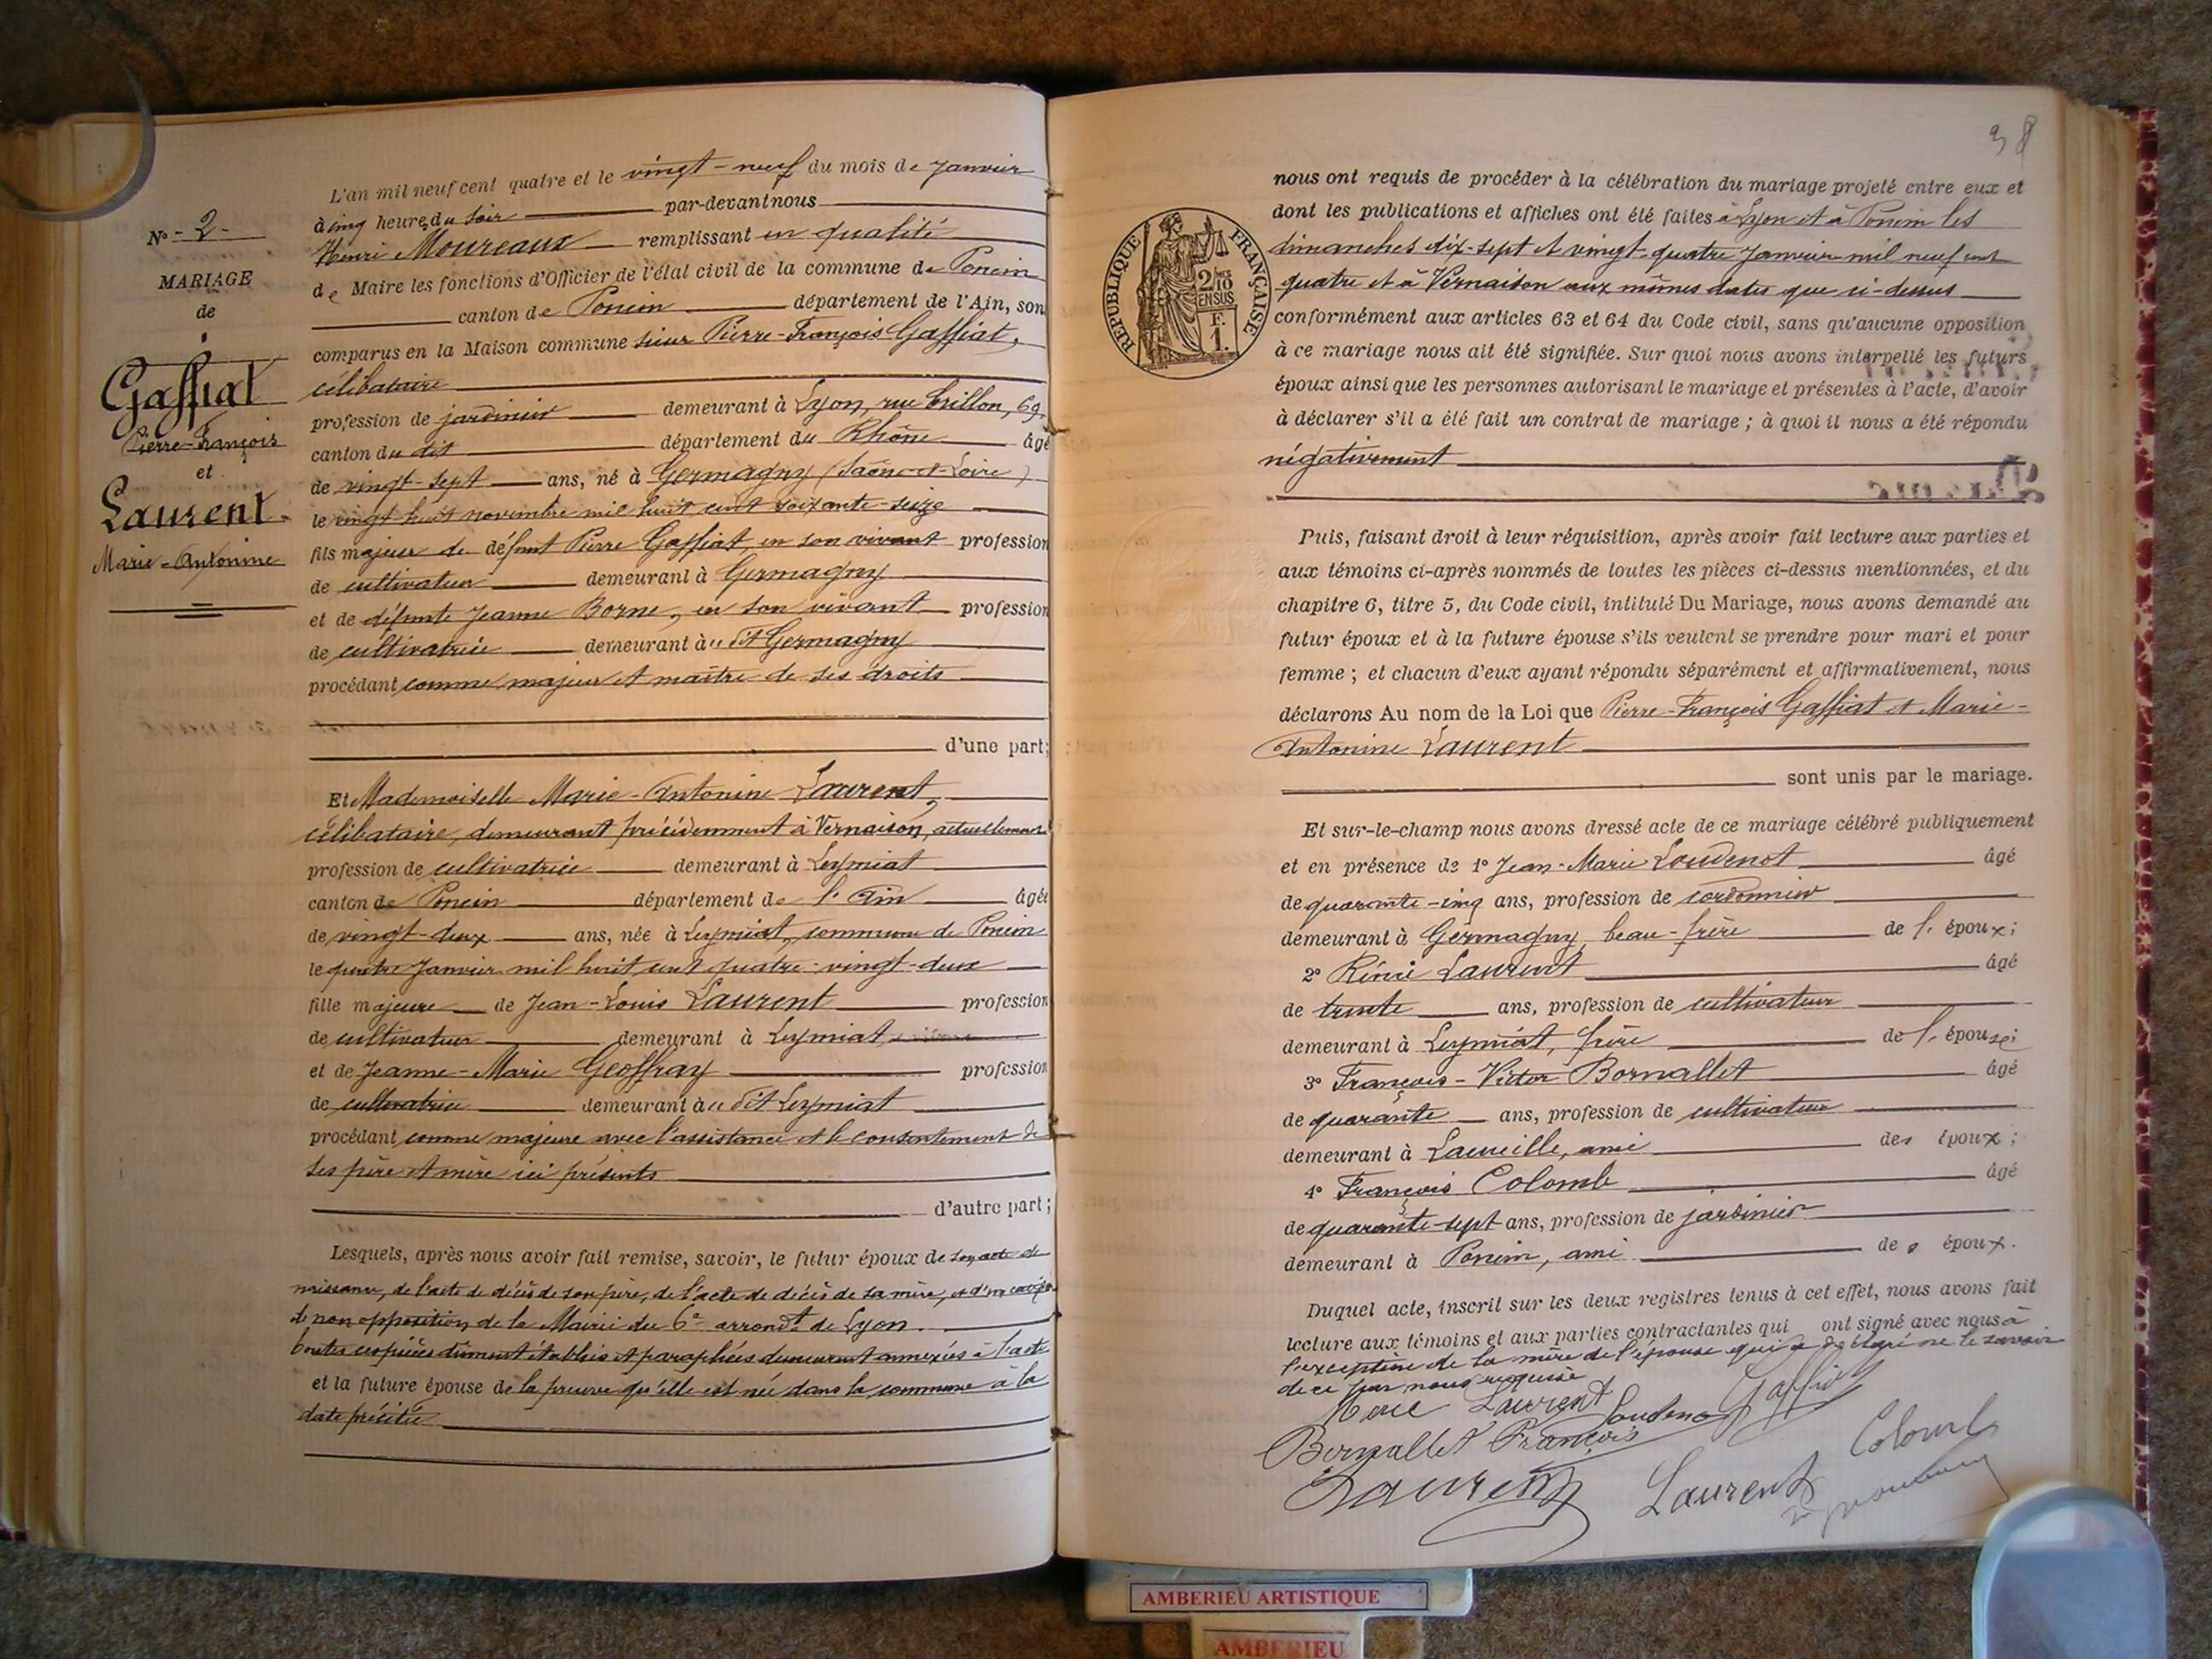 N° - 2 -
MARIAGE
de
Gaffiat
Pierre-François
et
Laurent
Marie-Antonine
L'an mil neuf cent quatre et le vingt-neuf du mois de Janvier
à cinq heures du soir par-devant nous
Henri Moureaux remplissant en qualité
de Maire les fonctions d'Officier de l'état civil de la commune de Poncin
canton de Poncin département de l'Ain, sont
comparus en la Maison commune sieur Pierre-François Gaffiat,
célibataire
profession de jardinier demeurant à Lyon, rue Crillon, 69,
canton du dit département du Rhône âgé
de vingt-sept ans, né à Germagny (Saône-et-Loire)
le vingt huit novembre mil huit cent soixante-seize
fils majeur de défunt Pierre Gaffiat, en son vivant profession
de cultivateur demeurant à Germagny
et de défunte Jeanne Borne, en son vivant profession
de cultivatrice demeurant au dit Germagny
procédant comme majeur et maître de ses droits
d'une part;
Et Mademoiselle Marie-Antonine Laurent,
célibataire, demeurant précédemment à Vernaison, actuellement
profession de cultivatrice demeurant à Leymiat
canton de Poncin département de l'Ain âgée
de vingt-deux ans, née à Leymiat, commune de Poncin
le quatre Janvier mil huit cent quatre-vingt-deux
fille majeure de Jean-Louis Laurent profession
de cultivateur demeurant à Leymiat
et de Jeanne-Marie Geoffray profession
de cultivatrice demeurant au dit Leymiat
procédant comme majeure avec l'assistance et le consentement de
ses père et mère ici présents
d'autre part;
Lesquels, après nous avoir fait remise, savoir, le futur époux de son acte de
naissance, de l'acte de décès de son père, de l'acte de décès de sa mère, et d'un certificat
de non opposition de la Mairie du 6e arrondt de Lyon.
toutes ces pièces dûment établies et paraphées demeurent annexées à l'acte
et la future épouse de la preuve qu'elle est née dans la commune à la
date précitée
38
REPUBLIQUE FRANÇAISE
2/10 EN SUS
F. 1.
nous ont requis de procéder à la célébration du mariage projeté entre eux et
dont les publications et affiches ont été faites à Lyon et à Poncin les
dimanches dix-sept et vingt-quatre Janvier mil neuf cent
quatre et à Vernaison aux mêmes dates que ci-dessus
conformément aux articles 63 et 64 du Code civil, sans qu'aucune opposition
à ce mariage nous ait été signifiée. Sur quoi nous avons interpellé les futurs
époux ainsi que les personnes autorisant le mariage et présentes à l'acte, d'avoir
à déclarer s'il a été fait un contrat de mariage ; à quoi il nous a été répondu
négativement
Puis, faisant droit à leur réquisition, après avoir fait lecture aux parties et
aux témoins ci-après nommés de toutes les pièces ci-dessus mentionnées, et du
chapitre 6, titre 5, du Code civil, intitulé Du Mariage, nous avons demandé au
futur époux et à la future épouse s'ils veulent se prendre pour mari et pour
femme ; et chacun d'eux ayant répondu séparément et affirmativement, nous
déclarons Au nom de la Loi que Pierre-François Gaffiat et Marie-
Antonine Laurent
sont unis par le mariage.
Et sur-le-champ nous avons dressé acte de ce mariage célébré publiquement
et en présence de 1° Jean-Marie Loudenot âgé
de quarante-cinq ans, profession de cordonnier
demeurant à Germagny, beau-frère de l'époux;
2° Rémi Laurent âgé
de trente ans, profession de cultivateur
demeurant à Leymiat, frère de l'épouse;
3° François-Victor Bornallet âgé
de quarante ans, profession de cultivateur
demeurant à Lameille, ami des époux;
4° François Colomb âgé
de quarante-sept ans, profession de jardinier
demeurant à Poncin, ami des époux.
Duquel acte, inscrit sur les deux registres tenus à cet effet, nous avons fait
lecture aux témoins et aux parties contractantes qui ont signé avec nous à
l'exception de la mère de l'épouse qui a déclaré ne le savoir
de ce par nous requise
Laurent Loudenot Gaffiat
Bornallet François Colomb
Laurent Laurent
AMBERIEU ARTISTIQUE
AMBERIEU